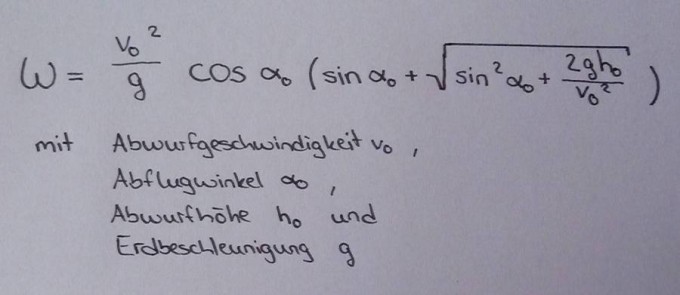 W = v₀²/g cos α₀ (sin α₀ + √(sin² α₀ + 2gh₀/v₀²))
mit Abwurfgeschwindigkeit v₀ ,
Abflugwinkel α₀ ,
Abwurfhöhe h₀ und
Erdbeschleunigung g